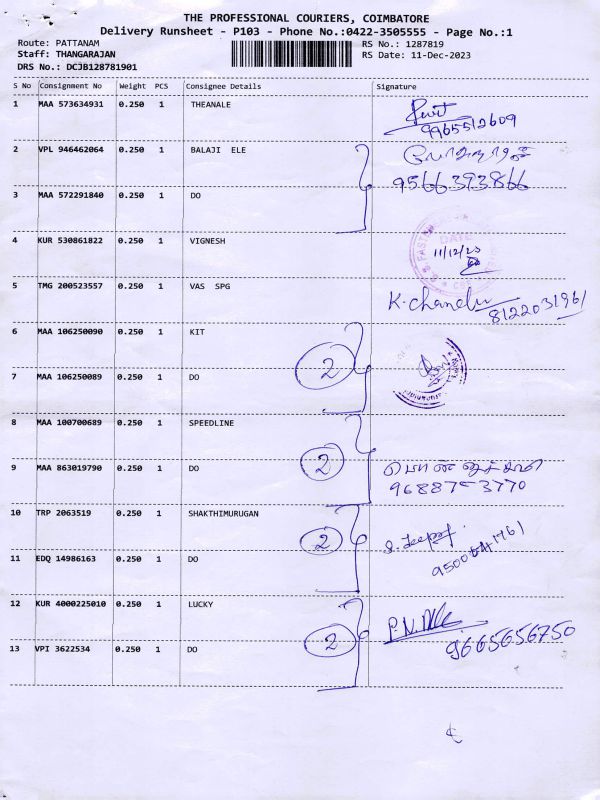 THE PROFESSIONAL COURIERS, COIMBATORE
Delivery Runsheet - P103 - Phone No.:0422-3505555 - Page No.:1
Route: PATTANAM RS No.: 1287819
Staff: THANGARAJAN RS Date: 11-Dec-2023
DRS No.: DCJB128781901
S No Consignment No Weight PCS Consignee Details Signature
1 MAA 573634931 0.250 1 THEANALE
9965512609
2 VPL 946462064 0.250 1 BALAJI ELE
9566393866
3 MAA 572291840 0.250 1 DO
DATE
4 KUR 530861822 0.250 1 VIGNESH
11/12/23
5 TMG 200523557 0.250 1 VAS SPG
K. Chandru 8122031961
6 MAA 106250090 0.250 1 KIT
2
7 MAA 106250089 0.250 1 DO
8 MAA 100700689 0.250 1 SPEEDLINE
2
9 MAA 863019790 0.250 1 DO
10 TRP 2063519 0.250 1 SHAKTHIMURUGAN
2
11 EDQ 14986163 0.250 1 DO
12 KUR 4000225010 0.250 1 LUCKY
2
9665656750
13 VPI 3622534 0.250 1 DO